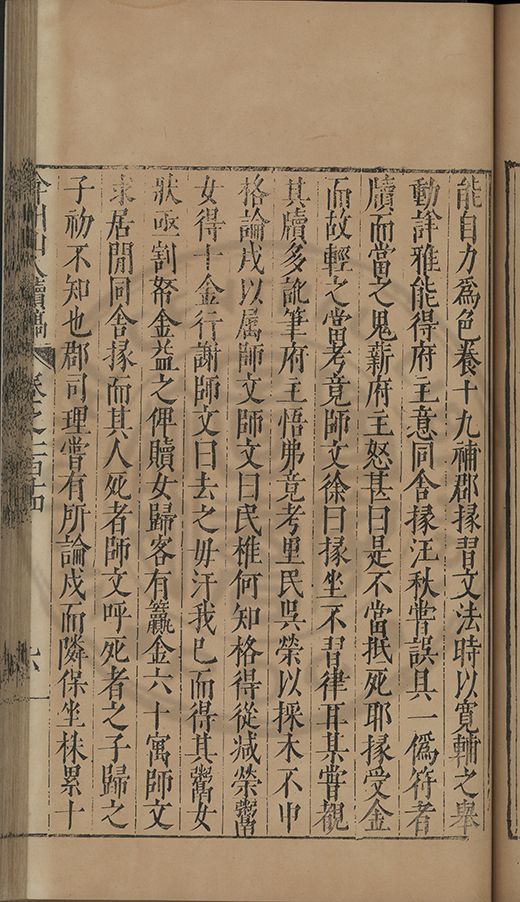 能自力爲色養十九補郡掾習文法時以寬輔之舉
動詳雅能得府主意同舍掾汪秋嘗誤具一僞符者
牘而當之鬼薪府主怒甚曰是不當抵死耶掾受金
而故輕之當考竟師文徐曰掾坐不習律耳某嘗覩
其牘多訛筆府主悟弗竟考里民吳榮以採木不中
格論戍以属師文師文曰民椎何知格得從减榮鬻
女得十金行謝師文曰去之毋汙我已而得其鬻女
狀亟割帑金益之俾贖女歸客有籯金六十寓師文
未居閒同舍掾而其人死者師文呼死者之子歸之
子初不知也郡司理嘗有所論戍而隣保坐株累十
弇州山人續稿 卷之
六